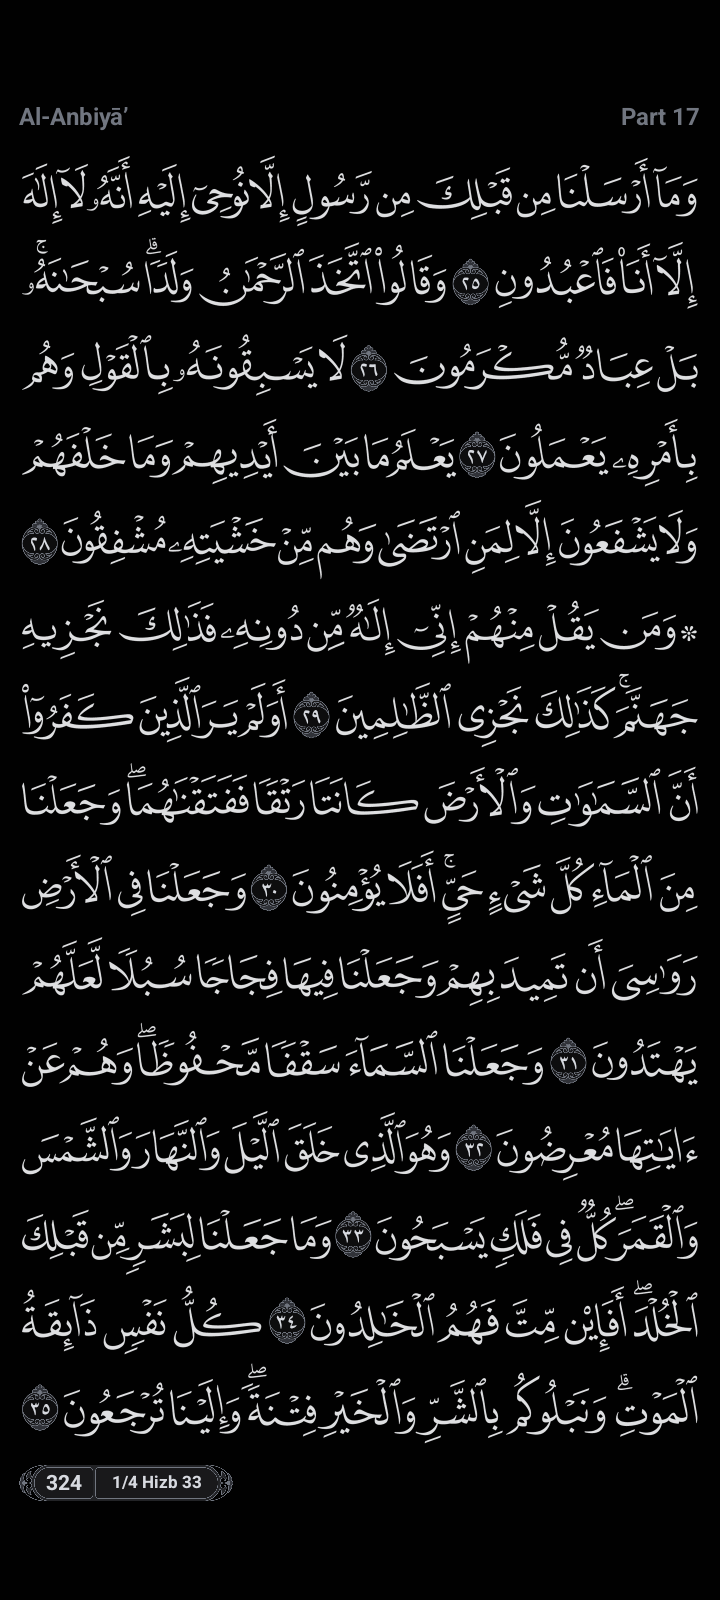 Al-Anbiyā’ Part 17
وَمَآ أَرْسَلْنَا مِن قَبْلِكَ مِن رَّسُولٍ إِلَّا نُوحِىٓ إِلَيْهِ أَنَّهُۥ لَآ إِلَٰهَ
إِلَّآ أَنَا۠ فَٱعْبُدُونِ ٢٥ وَقَالُوا۟ ٱتَّخَذَ ٱلرَّحْمَٰنُ وَلَدًۭا ۗ سُبْحَٰنَهُۥ ۚ
بَلْ عِبَادٌۭ مُّكْرَمُونَ ٢٦ لَا يَسْبِقُونَهُۥ بِٱلْقَوْلِ وَهُم
بِأَمْرِهِۦ يَعْمَلُونَ ٢٧ يَعْلَمُ مَا بَيْنَ أَيْدِيهِمْ وَمَا خَلْفَهُمْ
وَلَا يَشْفَعُونَ إِلَّا لِمَنِ ٱرْتَضَىٰ وَهُم مِّنْ خَشْيَتِهِۦ مُشْفِقُونَ ٢٨
۞ وَمَن يَقُلْ مِنْهُمْ إِنِّىٓ إِلَٰهٌۭ مِّن دُونِهِۦ فَذَٰلِكَ نَجْزِيهِ
جَهَنَّمَ ۚ كَذَٰلِكَ نَجْزِى ٱلظَّٰلِمِينَ ٢٩ أَوَلَمْ يَرَ ٱلَّذِينَ كَفَرُوٓا۟
أَنَّ ٱلسَّمَٰوَٰتِ وَٱلْأَرْضَ كَانَتَا رَتْقًۭا فَفَتَقْنَٰهُمَا ۖ وَجَعَلْنَا
مِنَ ٱلْمَآءِ كُلَّ شَىْءٍ حَىٍّ ۚ أَفَلَا يُؤْمِنُونَ ٣٠ وَجَعَلْنَا فِى ٱلْأَرْضِ
رَوَٰسِىَ أَن تَمِيدَ بِهِمْ وَجَعَلْنَا فِيهَا فِجَاجًۭا سُبُلًۭا لَّعَلَّهُمْ
يَهْتَدُونَ ٣١ وَجَعَلْنَا ٱلسَّمَآءَ سَقْفًۭا مَّحْفُوظًۭا ۖ وَهُمْ عَنْ
ءَايَٰتِهَا مُعْرِضُونَ ٣٢ وَهُوَ ٱلَّذِى خَلَقَ ٱلَّيْلَ وَٱلنَّهَارَ وَٱلشَّمْسَ
وَٱلْقَمَرَ ۖ كُلٌّۭ فِى فَلَكٍۢ يَسْبَحُونَ ٣٣ وَمَا جَعَلْنَا لِبَشَرٍۢ مِّن قَبْلِكَ
ٱلْخُلْدَ ۖ أَفَإِي۟ن مِّتَّ فَهُمُ ٱلْخَٰلِدُونَ ٣٤ كُلُّ نَفْسٍۢ ذَآئِقَةُ
ٱلْمَوْتِ ۗ وَنَبْلُوكُم بِٱلشَّرِّ وَٱلْخَيْرِ فِتْنَةًۭ ۖ وَإِلَيْنَا تُرْجَعُونَ ٣٥
324 1/4 Hizb 33